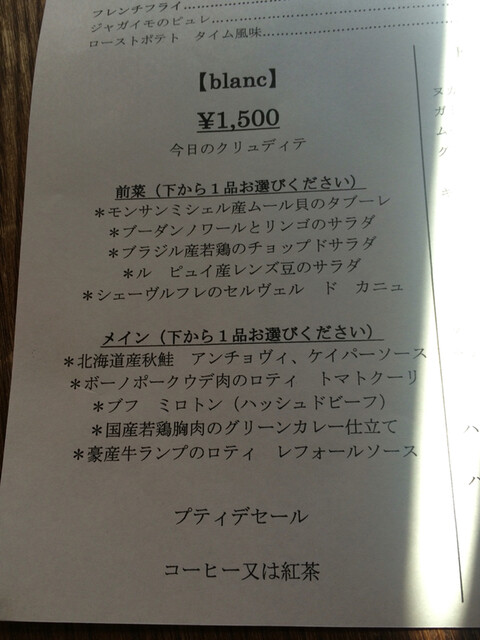 フレンチフライ
ジャガイモのピュレ
ローストポテト　タイム風味
【blanc】
¥1,500
今日のクリュディテ
前菜（下から１品お選びください）
＊モンサンミシェル産ムール貝のタブーレ
＊ブーダンノワールとリンゴのサラダ
＊ブラジル産若鶏のチョップドサラダ
＊ル　ピュイ産レンズ豆のサラダ
＊シェーヴルフレのセルヴェル　ド　カニュ
メイン（下から１品お選びください）
＊北海道産秋鮭　アンチョヴィ、ケイパーソース
＊ボーノポークウデ肉のロティ　トマトクーリ
＊ブフ　ミロトン（ハッシュドビーフ）
＊国産若鶏胸肉のグリーンカレー仕立て
＊豪産牛ランプのロティ　レフォールソース
プティデセール
コーヒー又は紅茶